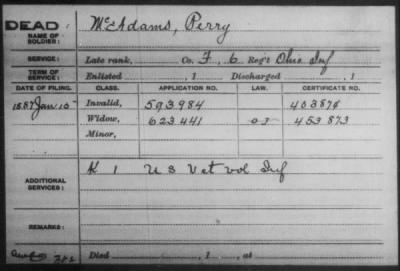 DEAD
NAME OF SOLDIER: McAdams, Perry
SERVICE: Late rank, Co. F, 6 Reg't Ohio Inf
TERM OF SERVICE: Enlisted , 1 Discharged , 1
DATE OF FILING. CLASS. APPLICATION NO. LAW. CERTIFICATE NO.
1887 Jan 10 Invalid, 593984 403878
Widow, 623441 453873
Minor,
ADDITIONAL SERVICES: K 1 U S Vet Vol Inf
REMARKS:
Died , 1 , at